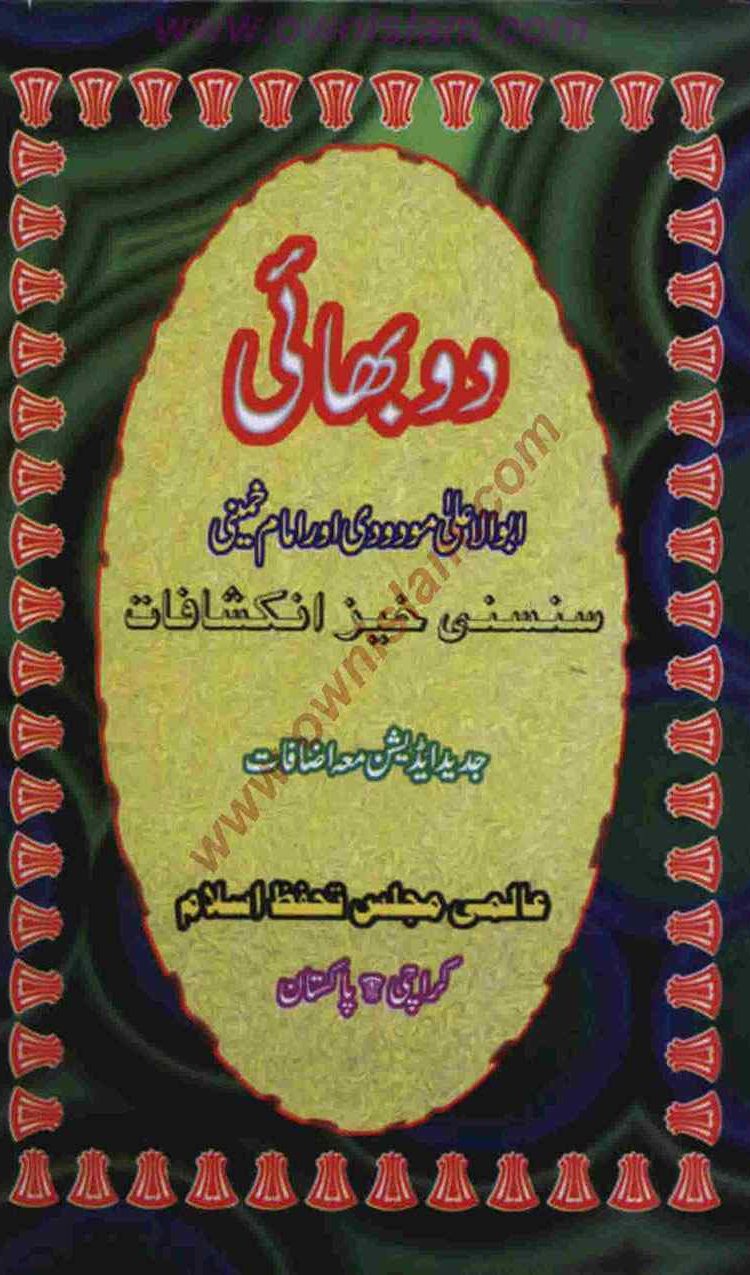 www.ownislam.com
دو بھائی
ابوالاعلیٰ مودودی اور امام خمینی
سنسنی خیز انکشافات
جدید ایڈیشن معہ اضافات
عالمی مجلس تحفظ اسلام
کراچی پاکستان
www.ownislam.com